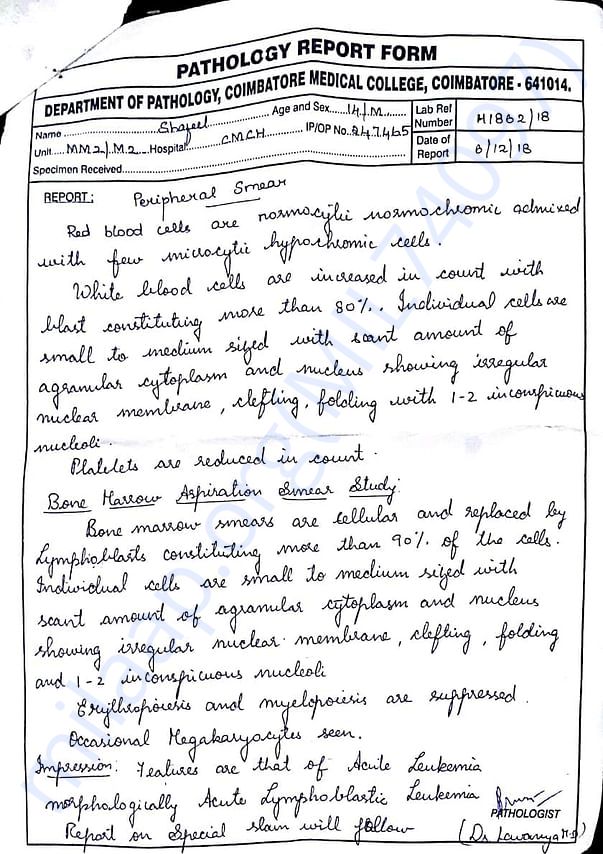 PATHOLOGY REPORT FORM
DEPARTMENT OF PATHOLOGY, COIMBATORE MEDICAL COLLEGE, COIMBATORE - 641014.
Name Shajeel Age and Sex 14/M Lab Ref Number H1862/18
Unit MM2/M2 Hospital CMCH IP/OP No. 247465 Date of Report 6/12/18
Specimen Received
REPORT: Peripheral Smear
Red blood cells are normocytic normochromic admixed
with few microcytic hypochromic cells.
White blood cells are increased in count with
blast constituting more than 80%. Individual cells are
small to medium sized with scant amount of
agranular cytoplasm and nucleus showing irregular
nuclear membrane, clefting, folding with 1-2 inconspicuous
nucleoli.
Platelets are reduced in count.
Bone Marrow Aspiration Smear Study:
Bone marrow smears are cellular and replaced by
Lymphoblasts constituting more than 90% of the cells.
Individual cells are small to medium sized with
scant amount of agranular cytoplasm and nucleus
showing irregular nuclear membrane, clefting, folding
and 1-2 inconspicuous nucleoli
Erythropoiesis and myelopoiesis are suppressed.
Occasional Megakaryocytes seen.
Impression: Features are that of Acute Leukemia
morphologically Acute Lymphoblastic Leukemia
PATHOLOGIST
Report on Special stain will follow (Dr Lavanya M.D)
milaap.org(MIL74097)